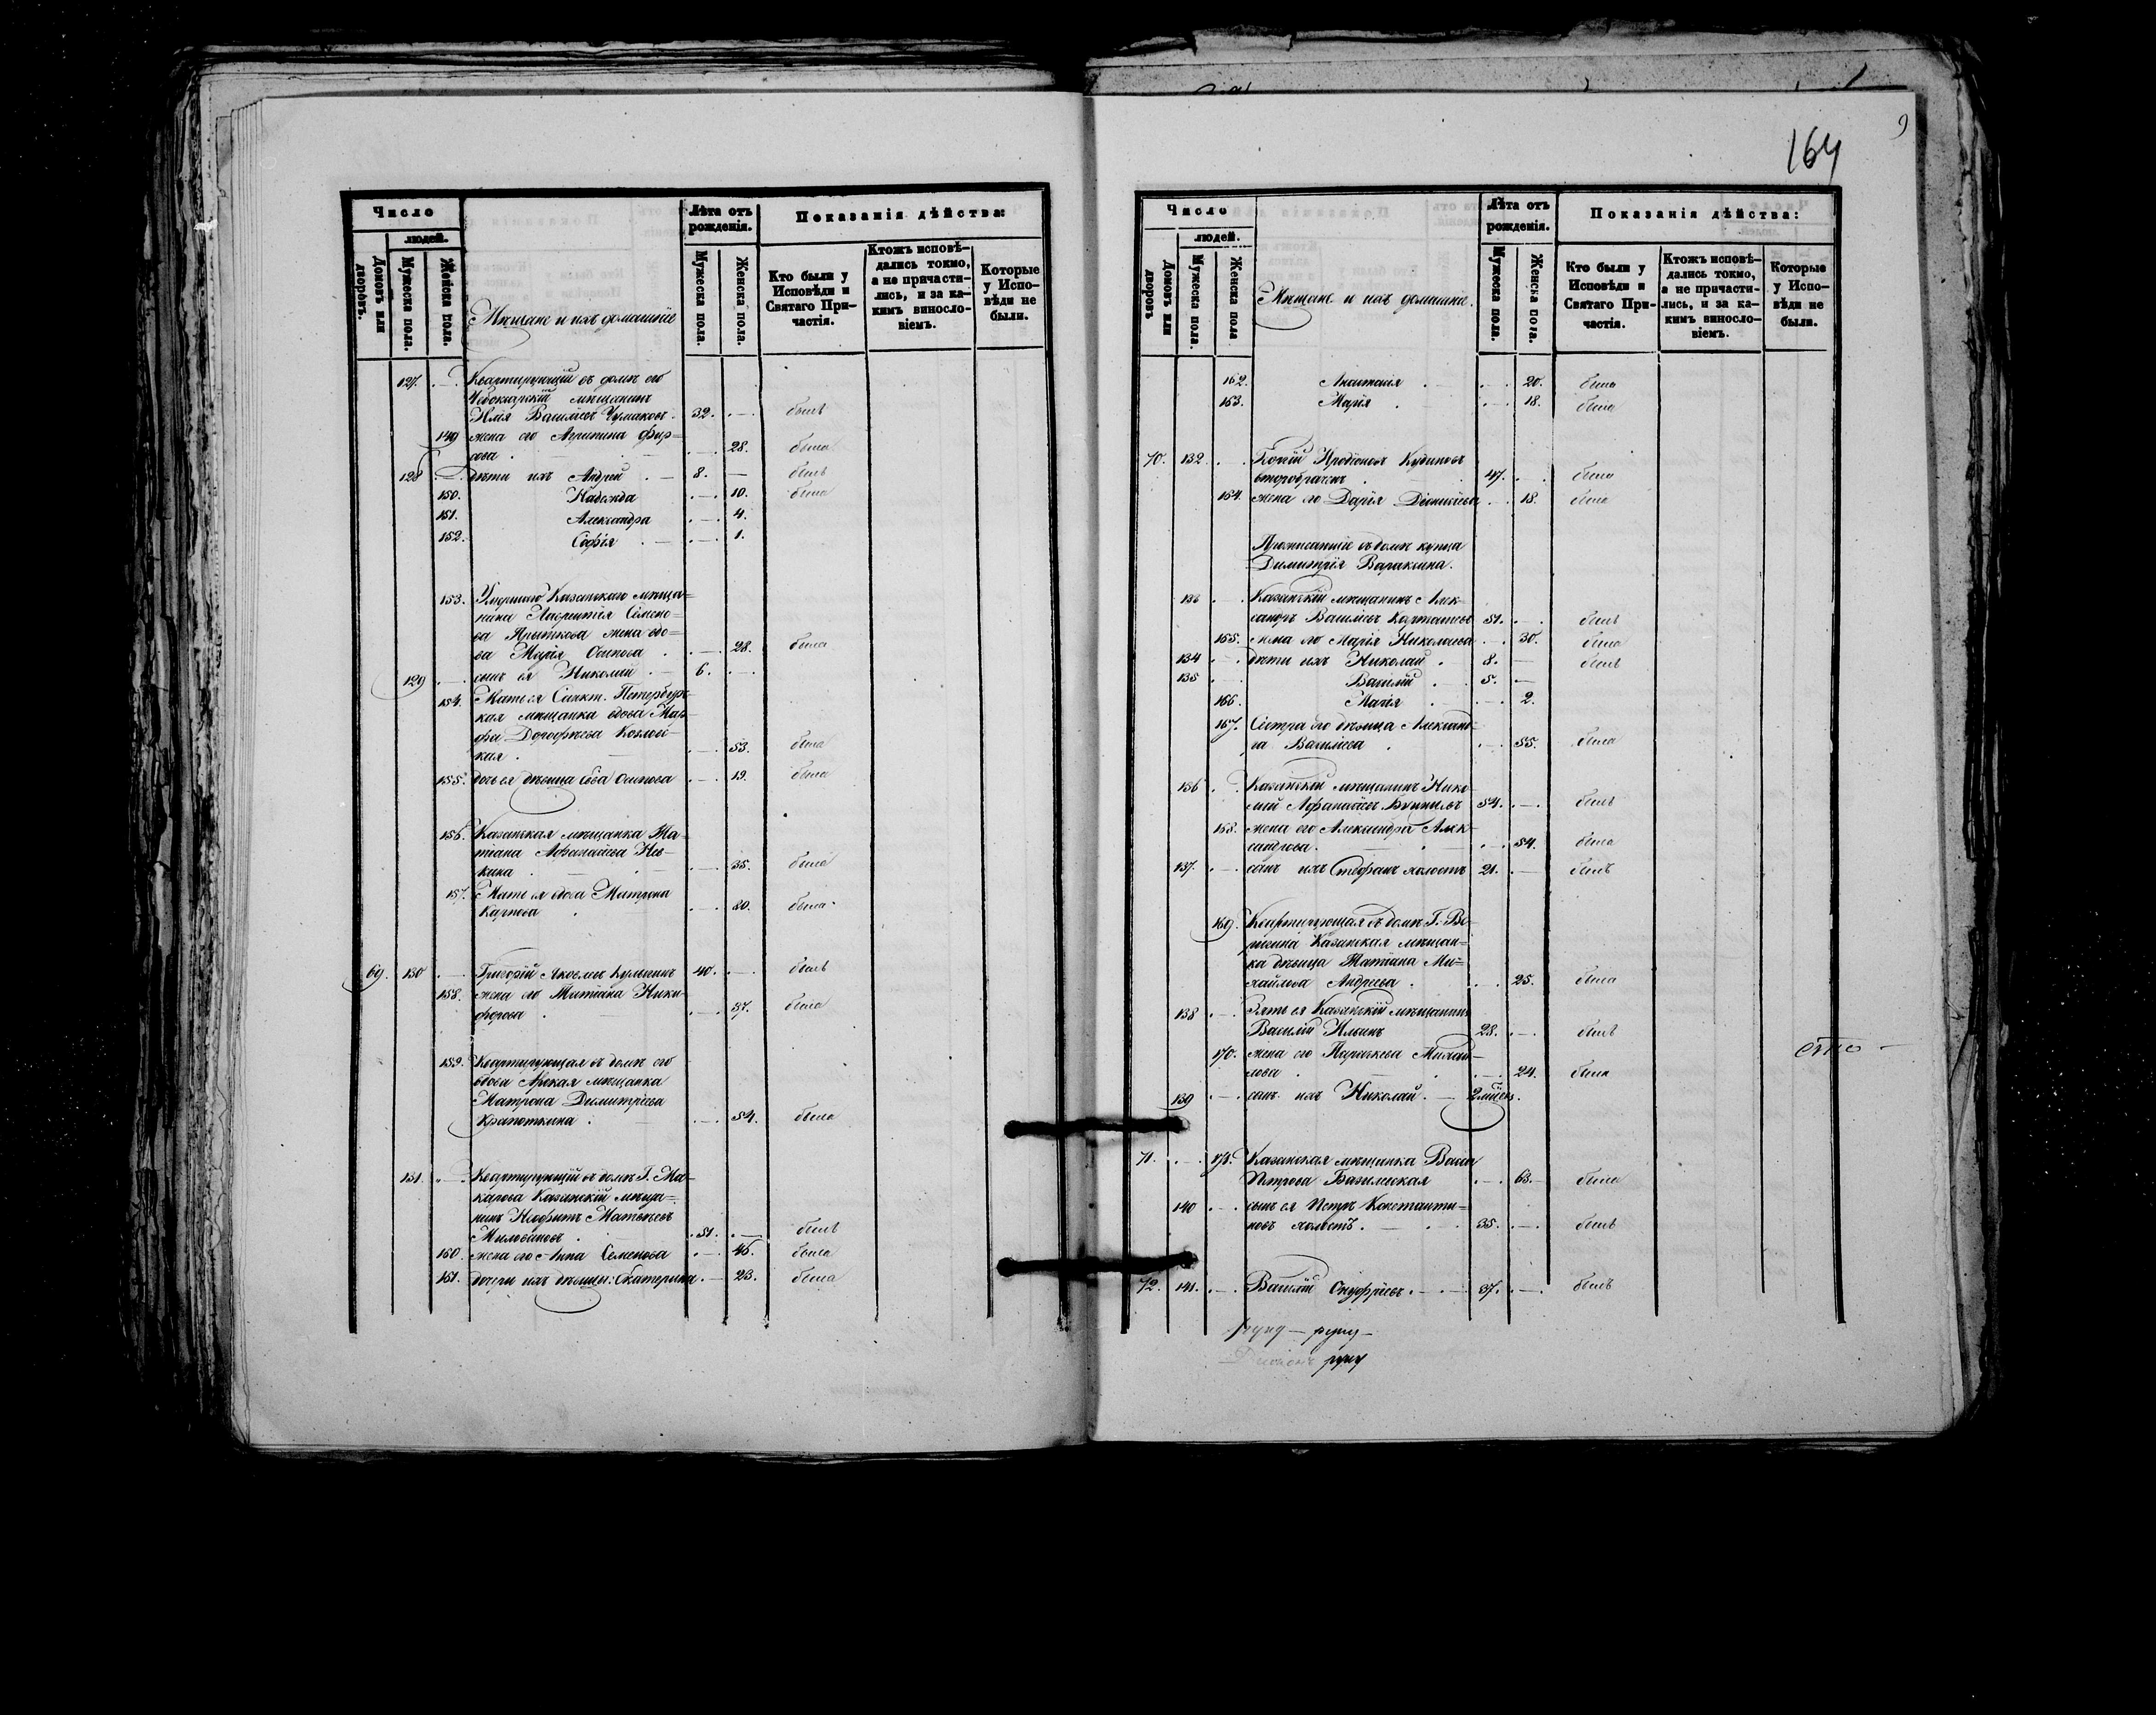 Число
людей.
Домовъ или дворовъ.
Мужеска пола.
Женска пола.
Мѣщане и ихъ домашніе
Лѣта отъ рожденія.
Мужеска пола.
Женска пола.
Показанія дѣйства:
Кто были у Исповѣди и Святаго Причастія.
Ктожъ исповѣдались токмо, а не причастились, и за какимъ винословіемъ.
Которые у Исповѣди не были.
127. Квартирующій въ домѣ его
Чебокарскій мѣщанинъ
Илія Василіевъ Чумаковъ. 32. былъ
149 жена его Агрипина Фир=
сова. 28. была
128 дѣти ихъ Андрей 8. былъ
150. Надежда 10. была
151. Александра 4.
152. Софія 1.
153. Умершаго Казанскаго мѣща=
нина Лаврентія Семено=
ва Прыткова жена вдо=
ва Марія Осипова 28. была
129 сынъ ея Николай 6.
154. Мать ея Санкт. Петербург
кая мѣщанка вдова Мар
фа Дорофѣева
кая. 53. была
155. дочь ея дѣвица Осипова 19. была
156. Казанская мѣщанка Та=
тіана Афанасіева
кина 35. была
157. Мать ея вдова Матрона
Карпова 80. была
69. 130 Григорій Яковлевъ 40. былъ
158. жена его Татіана Ники=
форова 37. была
159. Квартирующая въ домѣ его
вдова Арская мѣщанка
Матрона Димитріева
Крапоткина. 54. была
131. Квартирующій въ домѣ Г. Ма=
карова Казанскій мѣща=
нинъ Неофитъ Матвѣевъ
Миловановъ 51. былъ
160. жена его Анна Семенова 46. была
161. дочери ихъ дѣвицы: Екатерина 23. была
164
9
Число
людей.
Домовъ или дворовъ
Мужеска пола.
Женска пола
Мѣщане и ихъ домашніе.
Лѣта отъ рожденія.
Мужеска пола.
Женска пола.
Показанія дѣйства:
Кто были у Исповѣди и Святаго Причастія.
Ктожъ исповѣдались токмо, а не причастились, и за какимъ винословіемъ.
Которые у Исповѣди не были.
162. Анастасія 20. была
163. Марія 18. была
70. 132. Иродіоновъ
второбраченъ 47. былъ
164. жена его Дарія Діонисіева 18. была
Прописанніе въ домѣ купца
Димитрія Вараксина.
133 Казанскій мѣщанинъ Алек=
сандръ Василіевъ Карташевъ 51. былъ
165. жена его Марія Николаева 30. была
134 дѣти ихъ Николай 8. былъ
135 Василій 5.
166. Марія 2.
167. Сестра его дѣвица Александ=
ра Василіева 55. была
136 Казанскій мѣщанинъ Нико=
лай Афанасіевъ 54. былъ
168. жена его Александра Алек=
сандрова. 54. была
137. сынъ ихъ Стефанъ холостъ 21. былъ
169. Квартирующая въ домѣ Г. Ве=
ригина Казанская мѣщан=
ка дѣвица Татіана Ми=
хайлова Андреева 25. была
138 Зять ея Казанскій мѣщанинъ
Василій Ильинъ 28. былъ
170. жена его Параскева Михай=
лова 24. была
139 сынъ ихъ Николай. 2 мѣсяц.
71. 171. Казанская мѣщанка Васса
Петрова Базилевская 63. была
140 сынъ ея Петръ Константи=
новъ холостъ. 35. былъ
72. 141. Василій Онуфріевъ 37. былъ